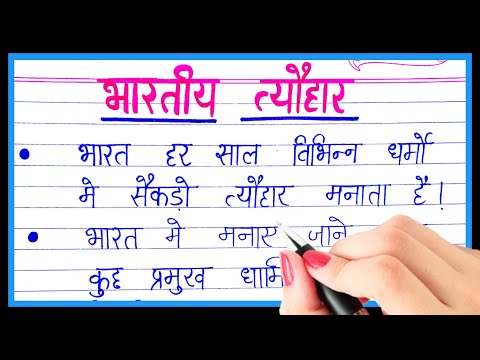 भारतीय त्यौहार
भारत हर साल विभिन्न धर्मो
मे सैकड़ो त्यौहार मनाता है!
भारत मे मनाए जाने
कुछ प्रमुख